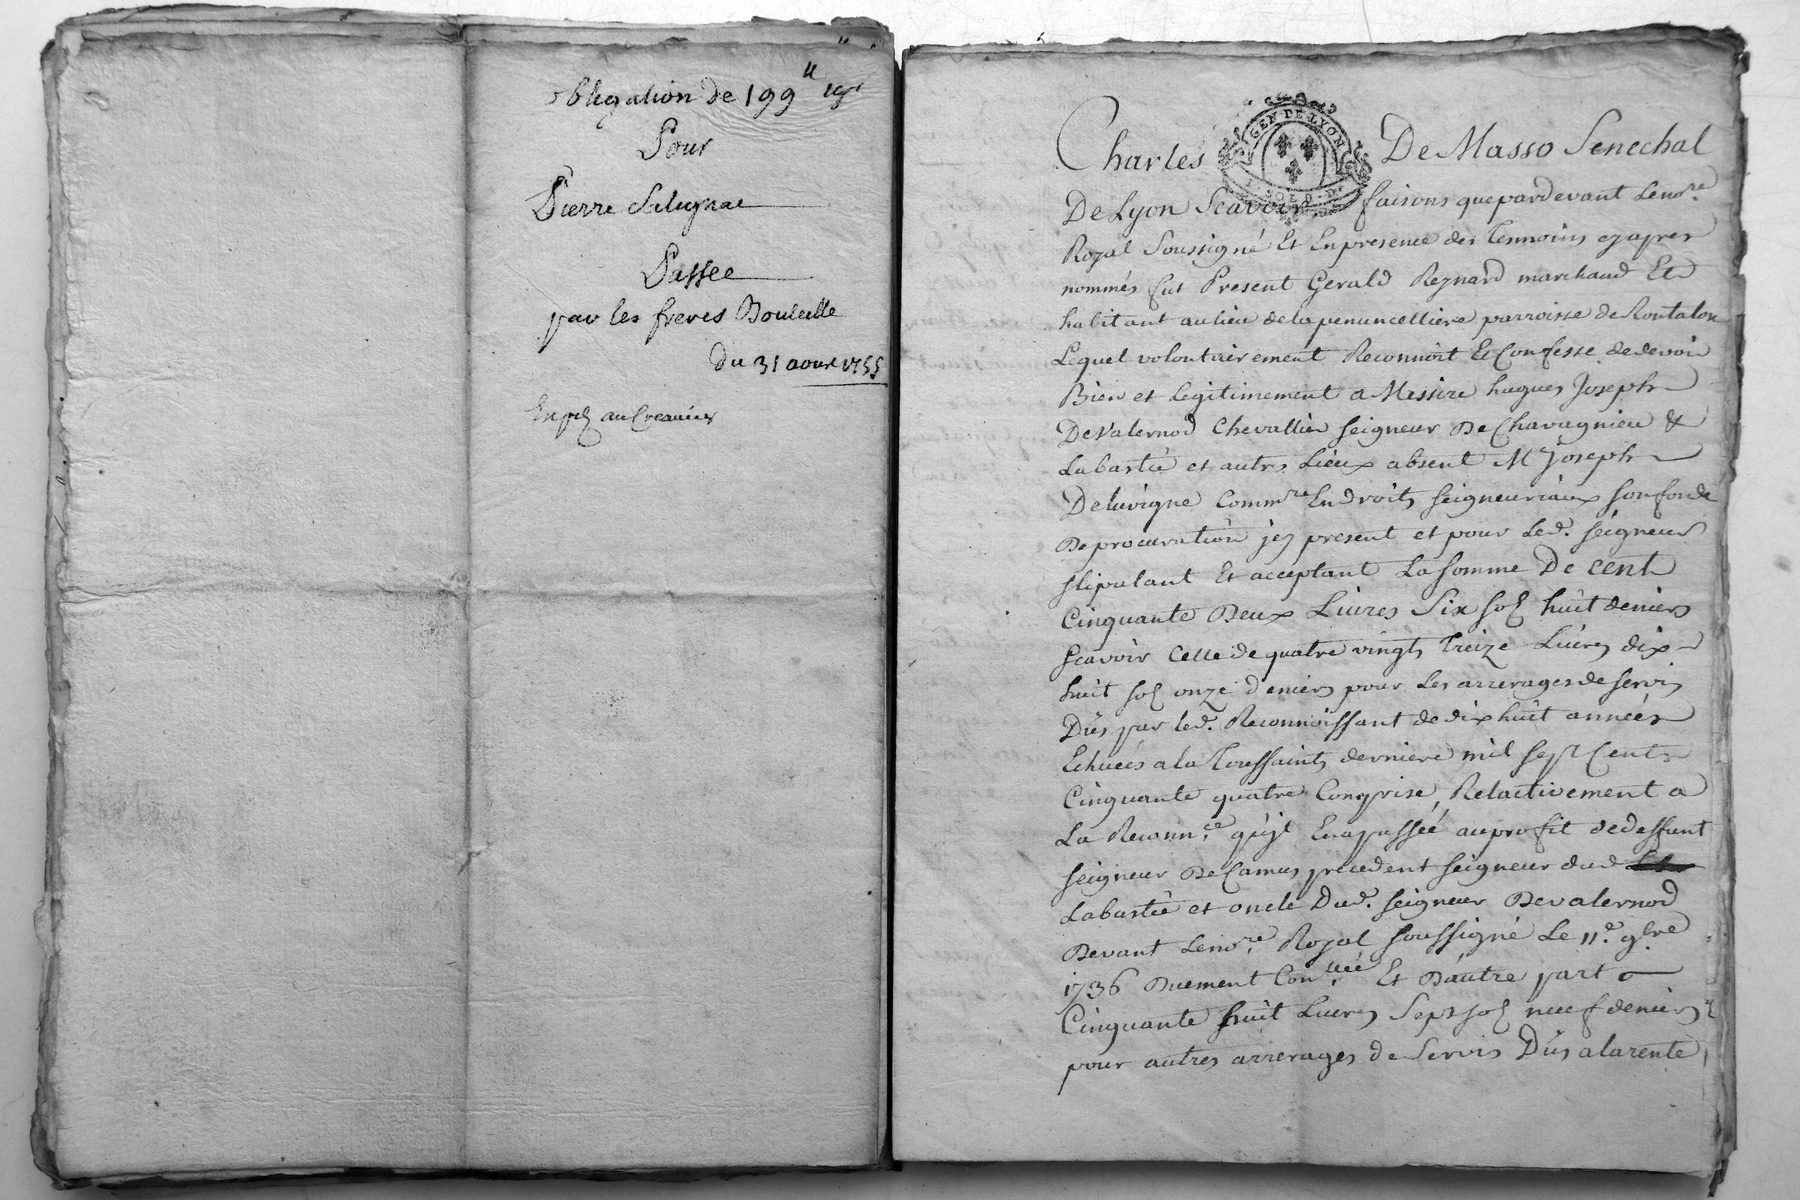 obligation de 199ᵗᵗ 19ˢ
Pour
Pierre Salignac
Passée
par les freres Bouteille
du 31 aout 1755
Exp au Creancier
GEN DE LYON
Charles De Masso Senechal
De Lyon Scavoir faisons que pardevant Le noʳᵉ
Royal Soussigné Et En presence des Temoins cy apres
nommés fut Present Gerald Reynard marchand Et
habitant au lieu de la penuncelliere parroisse de Rontalon
Lequel volontairement Reconnoit Et Confesse de devoir
Bien et legitimement a Messire hugues Joseph
De Valernod Chevallier seigneur De Chavagnieu &
Labastie et autres Lieux absent Mʳ Joseph
Delavigne Commʳᵉ En droits seigneuriaux son fondé
De procuration jcy present et pour Led. seigneur
stipulant Et acceptant La somme De cent
Cinquante Deux Livres Six sols huit deniers
scavoir Celle de quatre vingts Treize Livres dix
huit sols onze deniers pour Les arrerages de servis
Dûs par led. Reconnoissant de dix huit années
Echuées a la Toussaints derniere mil sept Cents
Cinquante quatre Comprise, Relactivement a
La Reconnᶜᵉ qu'jl En a passée au profit de deffunt
seigneur De Camus precedent seigneur dud
Labastie et oncle Dud. seigneur Devalernod
Devant Le noʳᵉ Royal soussigné Le 11ᵉ 9bre
1736 Duement Conˡˡᵉᵉ Et D'autre part
Cinquante huit Livres Sept sols neuf deniers
pour autres arrerages de Servis Dûs a la rente